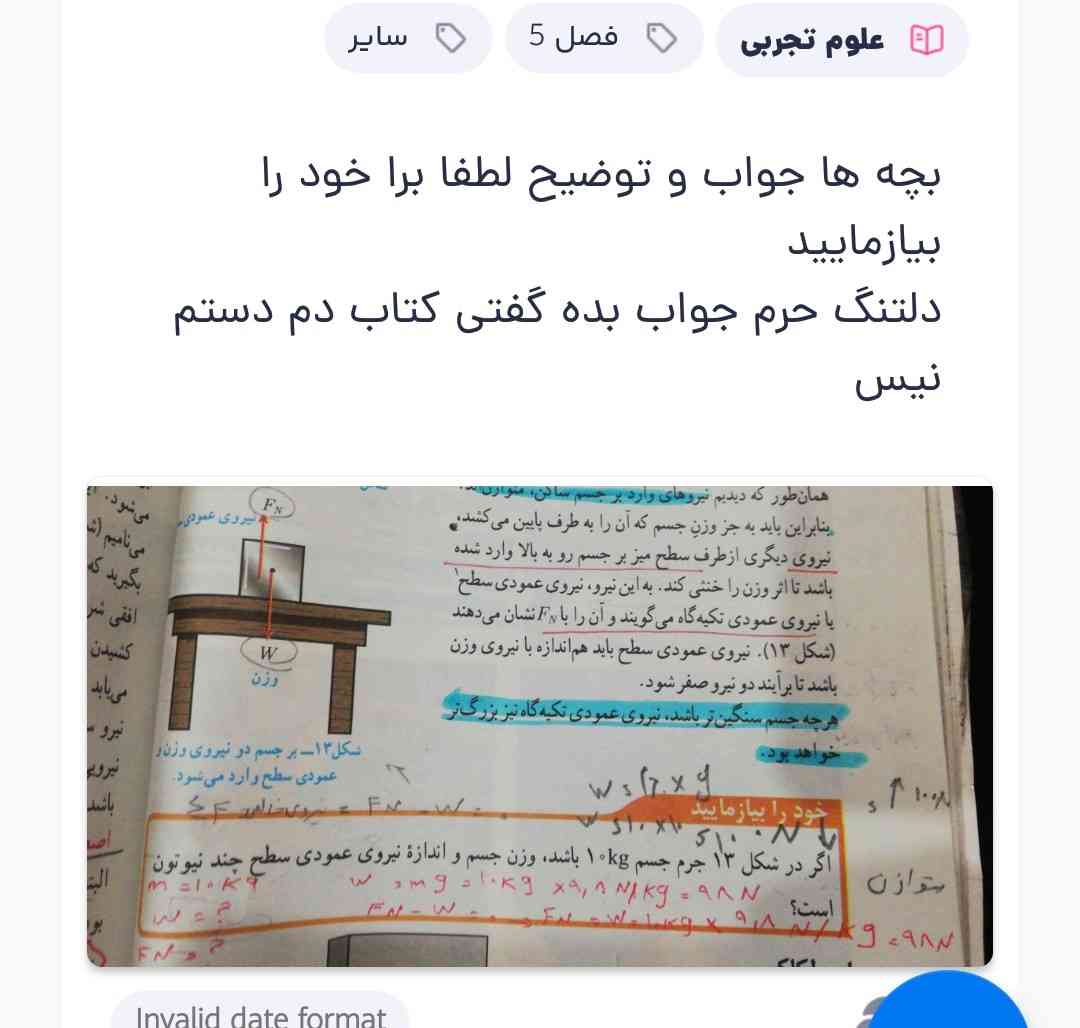 علوم تجربی
فصل 5
سایر
بچه ها جواب و توضیح لطفا برا خود را
بیازمایید
دلتنگ حرم جواب بده گفتی کتاب دم دستم
نیس
همان‌طور که دیدیم نیروهای وارد بر جسم ساکن، متوازن‌اند.
بنابراین باید به جز وزنِ جسم که آن را به طرف پایین می‌کشد،
نیروی دیگری ازطرف سطح میز بر جسم رو به بالا وارد شده
باشد تا اثر وزن را خنثی کند. به این نیرو، نیروی عمودی سطح۱
یا نیروی عمودی تکیه‌گاه می‌گویند و آن را با FN نشان می‌دهند
(شکل ۱۳). نیروی عمودی سطح باید هم‌اندازه با نیروی وزن
باشد تا برآیند دو نیرو صفر شود.
هرچه جسم سنگین‌تر باشد، نیروی عمودی تکیه‌گاه نیز بزرگ‌تر
خواهد بود.
FN
نیروی عمودی
W
وزن
شکل ۱۳ــ بر جسم دو نیروی وزن و
عمودی سطح وارد می‌شود.
می‌شود.
می‌نامیم
بگیرید که
افقی
کشیدن
می‌یابد
نیرو
نیرویی
باشد
البته
FN - W = 0
خود را بیازمایید
۱۰۰N
W = ۱۰ × ۱۰ = ۱۰۰ N
اگر در شکل ۱۳ جرم جسم ۱۰kg باشد، وزن جسم و اندازهٔ نیروی عمودی سطح چند نیوتون
است؟
متوازن
m = ۱۰ Kg
W = mg = ۱۰Kg × ۹,۸ N/Kg = ۹۸ N
W = ?
FN - W = ۰ FN = W = ۱۰Kg × ۹,۸ N/Kg = ۹۸N
FN = ?
Invalid date format